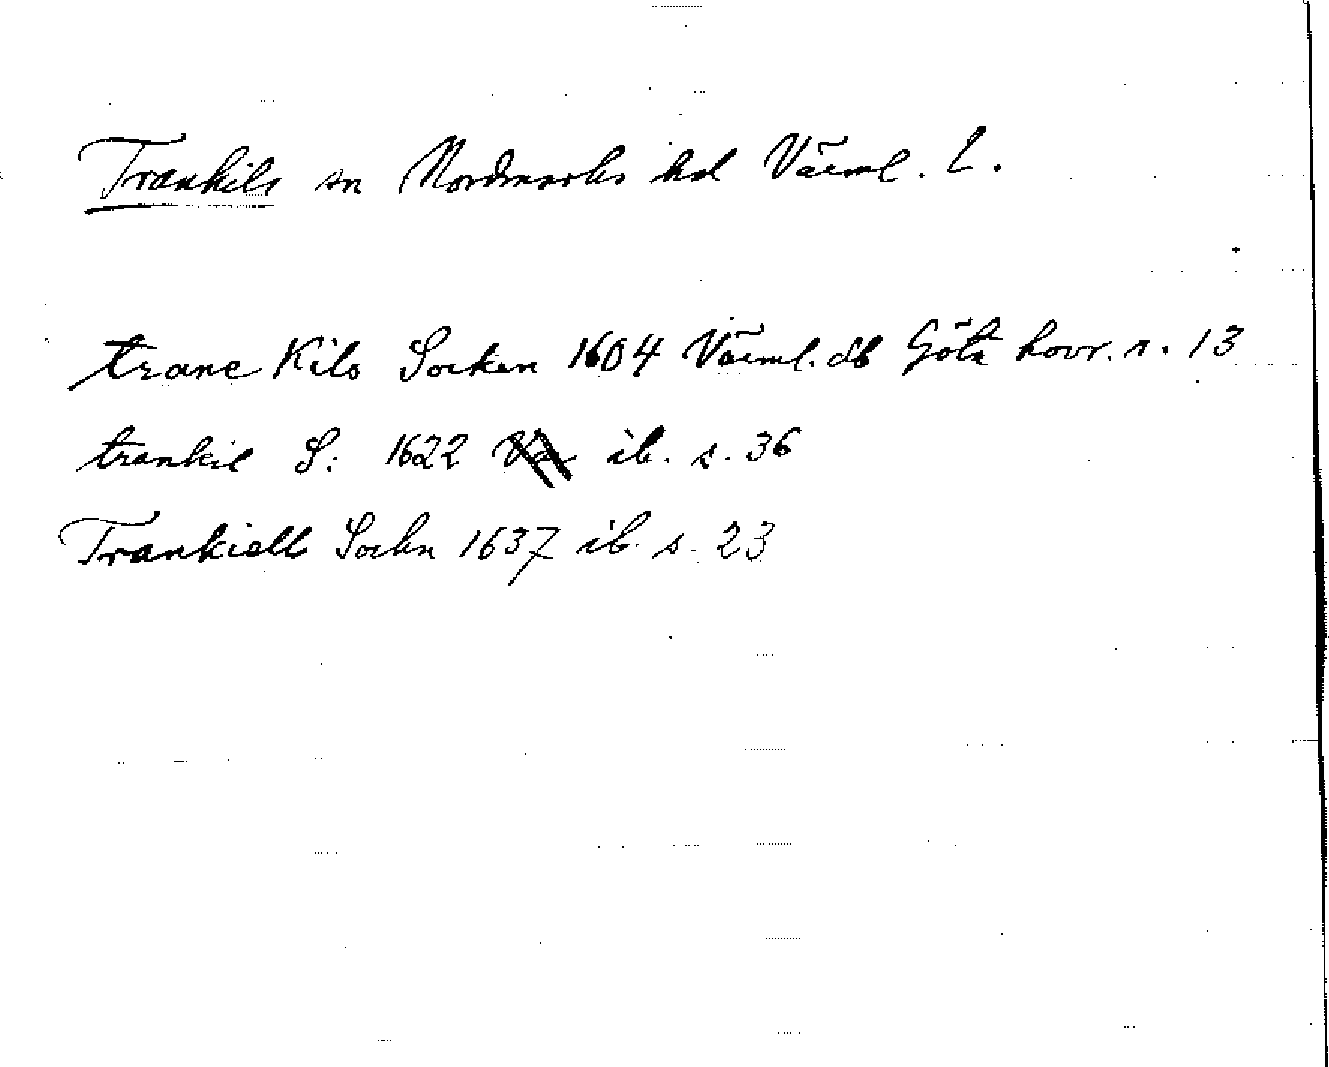 Trankils sn Nordmarks hd Värml. L.
trane Kils Socken 1604 Värml. db Göta hovr. s. 13
trankil S: 1622 ib. s. 36
Trankiells Sockn 1637 ib. s. 23